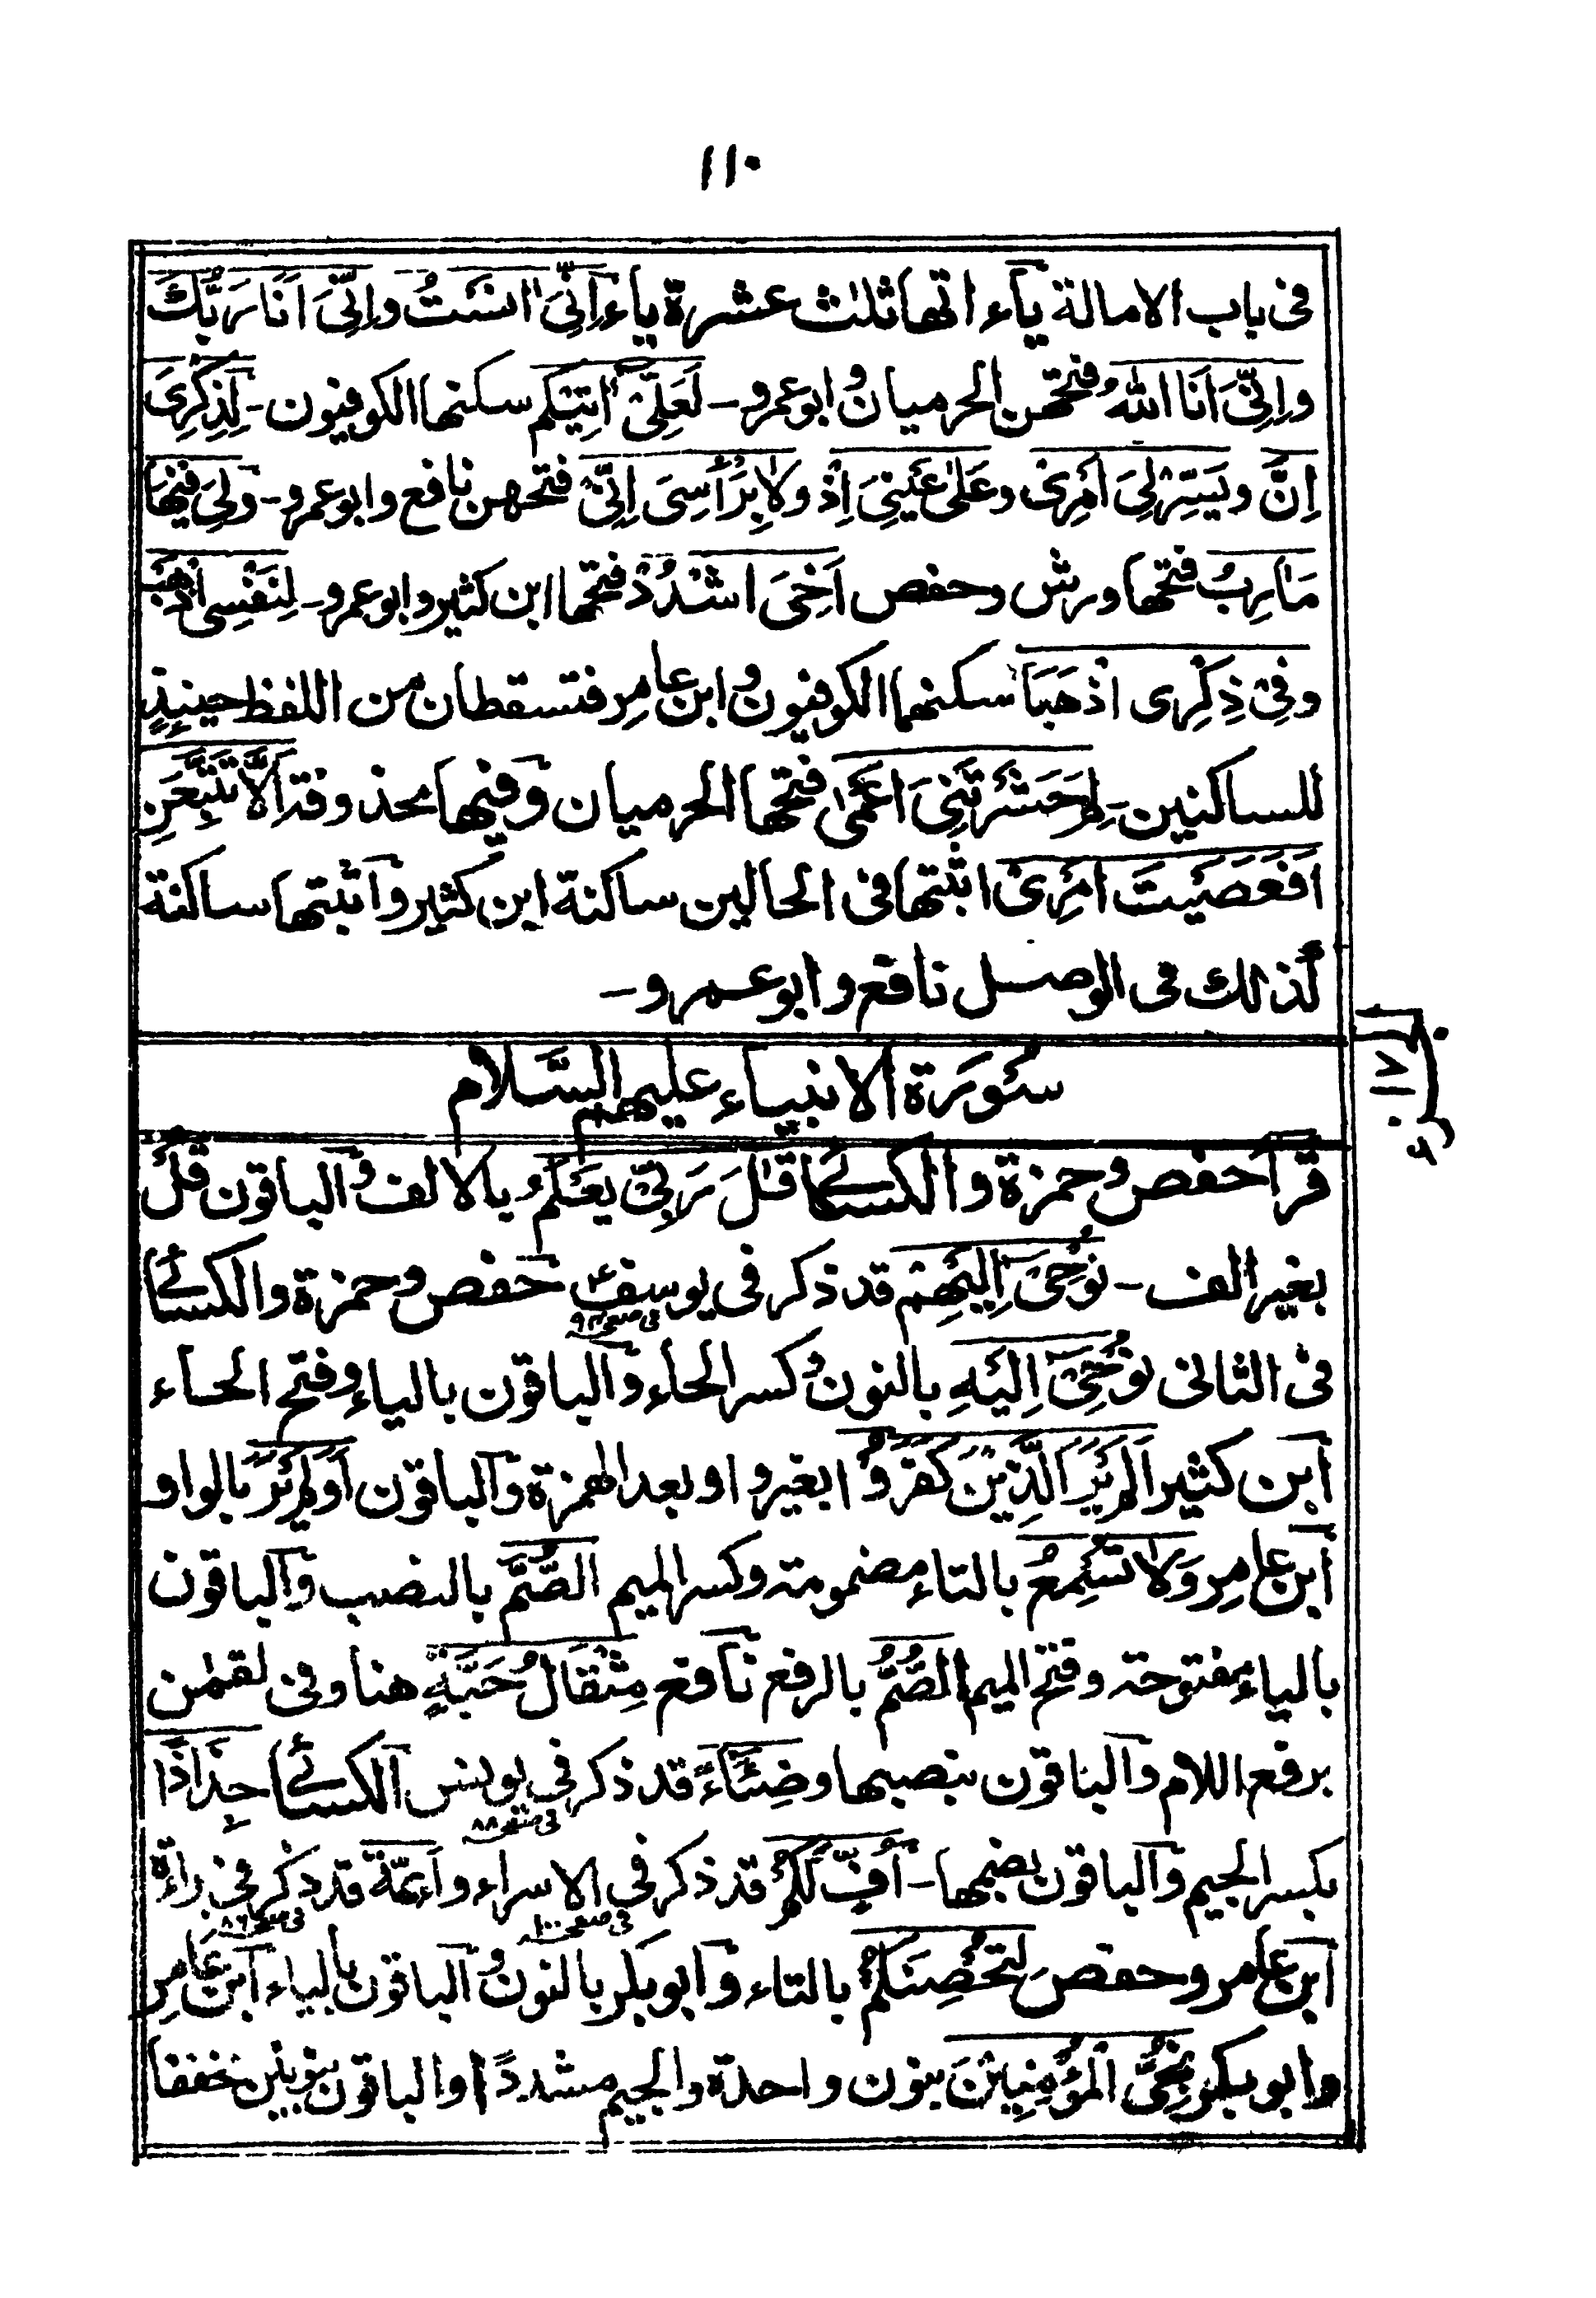 ١١٠
فى باب الامالة ياء اتها ثلٰث عشرة ياء اِنِّىٓ اٰنَسْتُ واِنِّىَ اَنَا رَبُّكَ
واِنَّنِىَ اَنَا اللّٰهُ فتحهن الحرميان وابو عمرو۔ لَعَلِّىْ اٰتِيْكُم سكنها الكوفيون۔ لِذِكْرِىَ
اِنَّ ويَسِّرْ لِىَ اَمْرِىْ وعَلٰى عَيْنِىَ اِذْ ولَا بِرَأْسِىَ اِنِّىْ فتحهن نافع وابو عمرو۔ ولِىَ فِيْهَا
مَاٰرِبُ فتحها ورش وحفص اَخِىَ اشْدُدْ فتحها ابن كثير وابو عمرو۔ لِنَفْسِى اذْهَبْ
وفِىْ ذِكْرِى اذْهَبَا سكنهما الكوفيون وابن عامر فتسقطان من اللفظ حينئذٍ
للساكنين۔ لِمَ حَشَرْتَنِىَ اَعْمٰى فتحها الحرميان وفيها محذوفة اَلَّا تَتَّبِعَنِ
اَفَعَصَيْتَ اَمْرِىْ اثبتها فى الحالين ساكنة ابن كثير واثبتها ساكنة
كذلك فى الوصل نافع وابو عمرو۔
سُوْرَة الانبياء عليهم السَّلام
قرأ حفص وحمزة والكسائى قٰلَ رَبِّىْ يَعْلَمُ بالالف والباقون قُلْ
بغير الف۔ نُوْحِىٓ اِلَيْهِمْ قد ذكر فى يوسف حفص وحمزة والكسائى
فى صفحه ٩٣
فى الثانى نُوْحِىْٓ اِلَيْهِ بالنون وكسر الحاء والباقون بالياء وفتح الحاء
ابن كثير اَلَمْ يَرَ الَّذِيْنَ كَفَرُوْا بغير واو بعد الهمزة والباقون اَوَلَمْ يَرَ بالواو
ابن عامر وَلَا تُسْمِعُ بالتاء مضمومة وكسر الميم الصُّمَّ بالنصب والباقون
بالياء مفتوحة وفتح الميم الصُّمُّ بالرفع نافع مِثْقَالُ حَبَّةٍ هنا وفى لقمٰن
برفع اللام والباقون بنصبها وضِئَآءً قد ذكر فى يونس الكسائى جِذَاذًا
فى صفحه ٨٨
بكسر الجيم والباقون بضمها۔ اُفٍّ لَّكُمْ قد ذكر فى الاسراء واَئِمَّةً قد ذكر فى براءة
فى صفحه ١٠٠ فى صفحه ٨٦
ابن عامر وحفص لِتُحْصِنَكُمْ بالتاء وابو بكر بالنون والباقون بالياء ابن عامر
وابو بكر نُجِّى الْمُؤْمِنِيْنَ بنون واحدة والجيم مشددًا والباقون بنونين مخففا